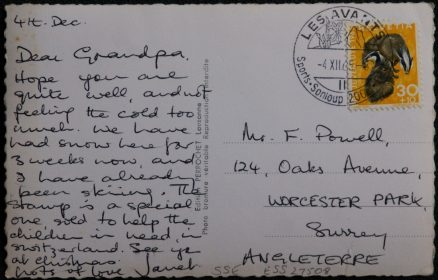 4th. Dec.
Dear Grandpa,
Hope you are
quite well, and not
feeling the cold too
much. We have
had snow here for
3 weeks now, and
I have already
been skiing. The
stamp is a special
one sold to help the
children in need, in
Switzerland. See you
at Christmas
Lots of love Janet
Editions PERROCHET Lausanne
Photo véritable Reproduction interdite
LES AVANTS
-4.XII.65-
Sports Sonloup 200
30
+10
Mr. F. Powell,
124, Oaks Avenue,
WORCESTER PARK,
Surrey
ANGLETERRE
SSE ESS 27508